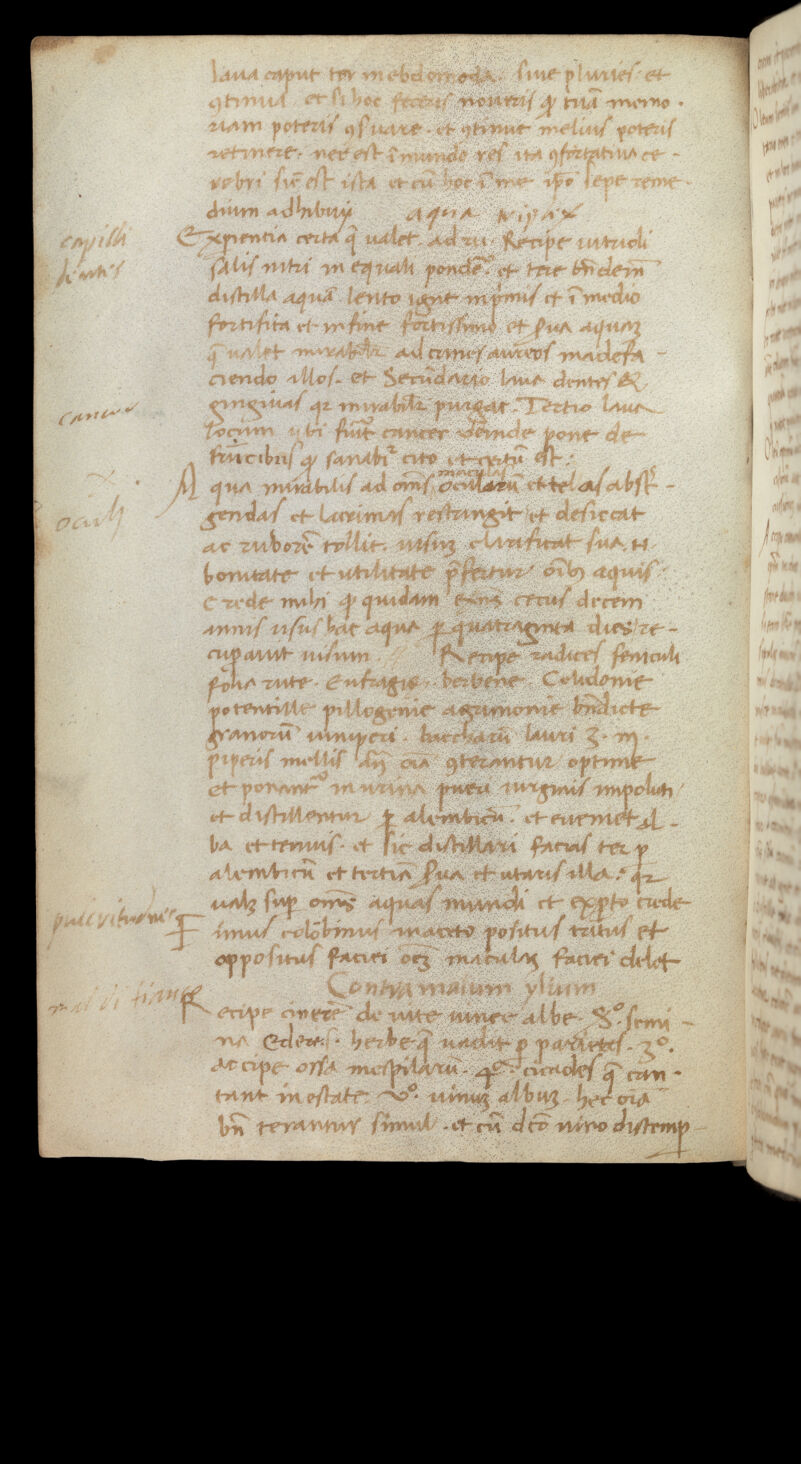 laua caput ter in ebdomoda. siue pluries. et
ꝯtinua. et si hoc feceris noueris ꝙ tuā memo.
riam poteris ꝯsuare. et ꝯtinue melius poteris
retinere. nec est ī mundo res ita ꝯfortatiua ce-
rebri sic̄ est ista et cū hoc ī me ip̄o sepe reme-
dium adhibuij aqua
capilli
Expientia certa q̄ ualet ad Recipe uitrioli
dentes
salis nitri in equali pondē. et tere bn̄ dein̄
distilla aquā lento igne in pͥmis et ī medio
fortifica et in fine fortissimo et ẜua aquaꝫ
q̄ ualet mirabilr̄ ad crines aureos madefa-
ciendo illos. et Secūdario laua dentes &
gingiuas qꝛ mirabilr̄ purgat. Tertio laua
cancer
locum ubi fuīt cancer deinde pone de
ꝙ sanabit͛ cito et certū est:
maculas
Aqua mirabilis ad om̄s oculorū et telas abst͛-
oculi
gendas et lacrimas restringit et desiccat
ac ruborē tollit. uisuꝫ clarificat sua.
bonitate et utilitate p̄fertur oībꝫ aquis.
Crede mihi ꝙ quidam cecus decem
annis usus hac aqua ꝑ quatraginta dies re-
cuꝑauit uisum. Recipe radices feniculi
folia rute. Eufragie. berbene. Celidonie
potentille pillogenie agrimonie bn̄dicte
granorū iuniperi. baccharū lauri ℥. iij.
piperis mellis an̄ oīa ꝯterantur optime
et ponant͛ in urina pueri uirginis impoluti
et distillentur ꝑ alembicū. et eueniet al-
ba et tenuis. et sic distillari facias ter ꝑ
alembicū et tertiā ẜua et utaris illa. qꝛ
ualꝫ suꝑ omēs aquas mundi et exꝑto crede
pulcritudines
Fimus colōbinus in aceto positus tritus et
oppositus faciei oēꝫ maculaꝫ faciei delet
Contra malum ylium
mal di fianco
Recipe cinerē de uite uinee albe. S.° semi-
na Edere. herbe q̄ uadit ꝑ parietes. 3°.
accipe ossa mespilarū. 4°. cicades q̄ can-
tant in estate. V°. uinuꝫ albuꝫ. hec oīa
bn̄ terantur simul. et cū dc̄o uino distemꝑ-